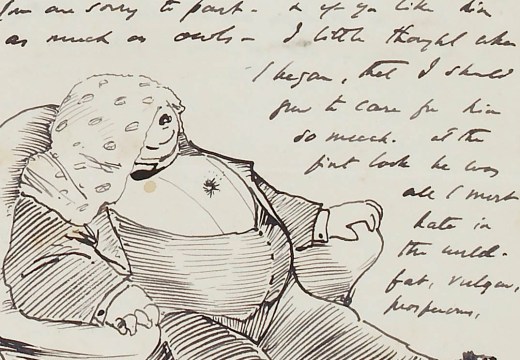 you are sorry to part - & if you like him
as much as owls - I little thought when
I began, that I should
grow to care for him
so much. at the
first look he was
all I most
hate in
the world -
fat, vulgar,
prosperous,